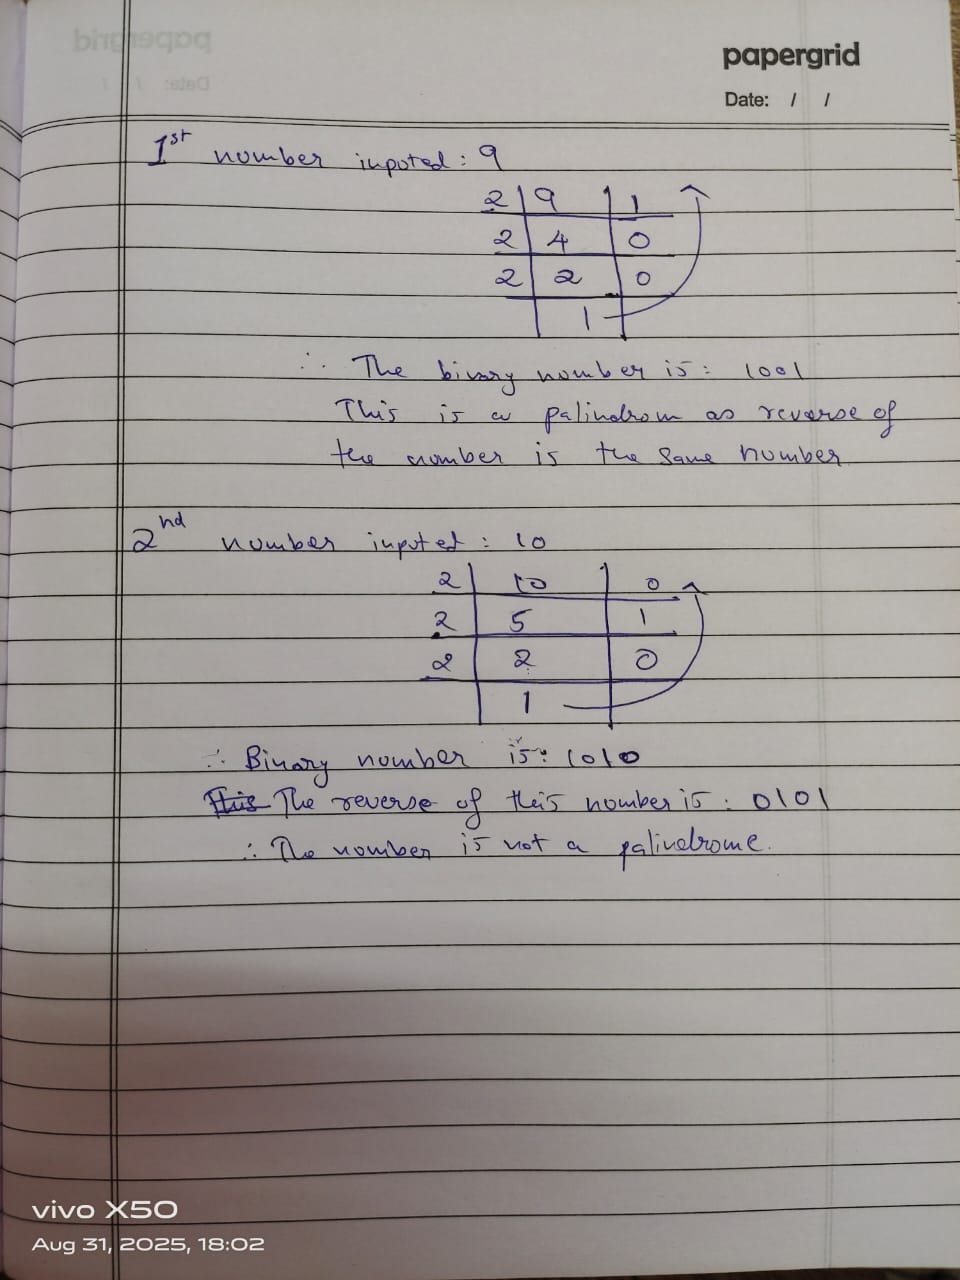 papergrid
Date: / /
1st number inputed: 9
2 9 1
2 4 0
2 2 0
1
∴ The binary number is: 1001
This is a palindrom as reverse of
the number is the same number
2nd number inputed: 10
2 10 0
2 5 1
2 2 0
1
∴ Binary number is: 1010
This The reverse of this number is: 0101
∴ The number is not a palindrome.
vivo X50
Aug 31, 2025, 18:02